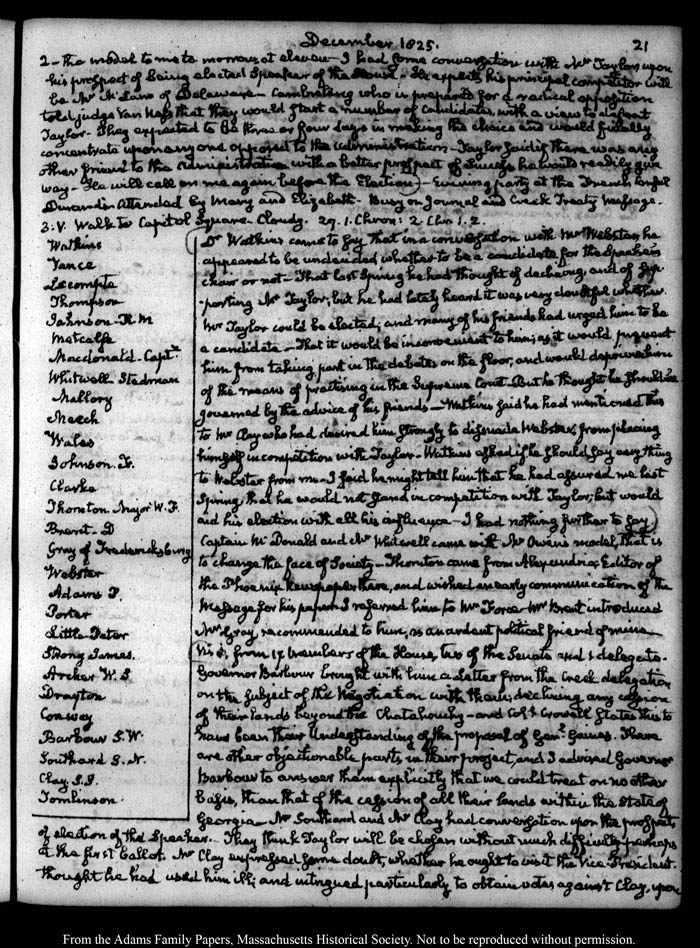 December 1825.
21
2 - the model to me to morrow at eleven - I had some conversation with Mr Taylor, upon
his prospect of being elected Speaker of the House. He expects his principal competitor will
be Mr McLane of Delaware - Cambreleng who is prepared for a radical opposition
told judge Van Ness that they would start a number of Candidates with a view to defeat
Taylor - They expected to be three or four days in making the choice and would finally
concentrate upon any one opposed to the Administration - Taylor said if there was any
other friend to the Administration with a better prospect of success he would readily give
way - He will call on me again before the Election) - Evening party at the French Consul
Durand's attended by Mary and Elizabeth. Busy on Journal and Creek Treaty Message.
3. V. Walk to Capitol Square. Cloudy. 29. 1. Chron: 2 Chr. 1. 2.
Watkins
Vance
Lecompte
Thompson
Johnson - R. M
Metcalfe
Macdonald. Captn
Whitwell Stedman
Mallory
Meech
Wales
Johnson. F.
Clarke
Thornton Major W. F.
Brent - D
Gray of Fredericksburg
Webster
Adams P.
Porter
Little Peter
Strong James.
Archer W. S
Drayton
Conway
Barbour S. W.
Southard S. N.
Clay. S. S.
Tomlinson.
(Dr Watkins came to say that in a conversation with Mr Webster, he
appeared to be undecided whether to be a candidate for the Speaker's
chair or not - That last Spring he had thought of declining, and of sup-
-porting Mr Taylor; but he had lately heard it was very doubtful whether
Mr Taylor could be elected; and many of his friends had urged him to be
a candidate - That it would be inconvenient to him; as it would prevent
him from taking part in the debates on the floor, and would deprive him
of the means of practising in the Supreme Court. But he thought he should be
governed by the advice of his friends - Watkins said he had mentioned this
to Mr Clay who had desired him strongly to dissuade Webster from placing
himself in competition with Taylor - Watkins asked if he should say any thing
to Webster from me - I said he might tell him that he had assured me last
Spring, that he would not stand in competition with Taylor; but would
aid his election with all his influence - I had nothing further to say)
Captain McDonald and Mr Whitwell came with Mr Owen's model, that is
to change the face of Society - Thornton came from Alexandria, Editor of
the Phoenix Newspaper there, and wished an early communication of the
Message for his paper. I referred him to Mr Force. Mr Brent introduced
Mr Gray, recommended to him, as an ardent political friend of mine -
from 17 members of the House, two of the Senate and 1 delegate.
Governor Barbour brought with him a Letter from the Creek delegation
on the subject of the Negotiation with them; declining any cession
of their lands beyond the Chatahouchy - and Coll Crowell states this to
have been their Understanding of the proposal of Genl Gaines. There
are other objectionable parts in their project, and I advised Governor
Barbour to answer them explicitly that we could treat on no other
basis, than that of the cession of all their lands within the State of
Georgia - Mr Southard and Mr Clay had conversation upon the prospects
of election of the Speaker. They think Taylor will be chosen without much difficulty; perhaps
at the first Ballot. Mr Clay expressed some doubt, whether he ought to visit the Vice-President.
thought he had used him ill; and intrigued particularly to obtain votes against Clay, upon
From the Adams Family Papers, Massachusetts Historical Society. Not to be reproduced without permission.